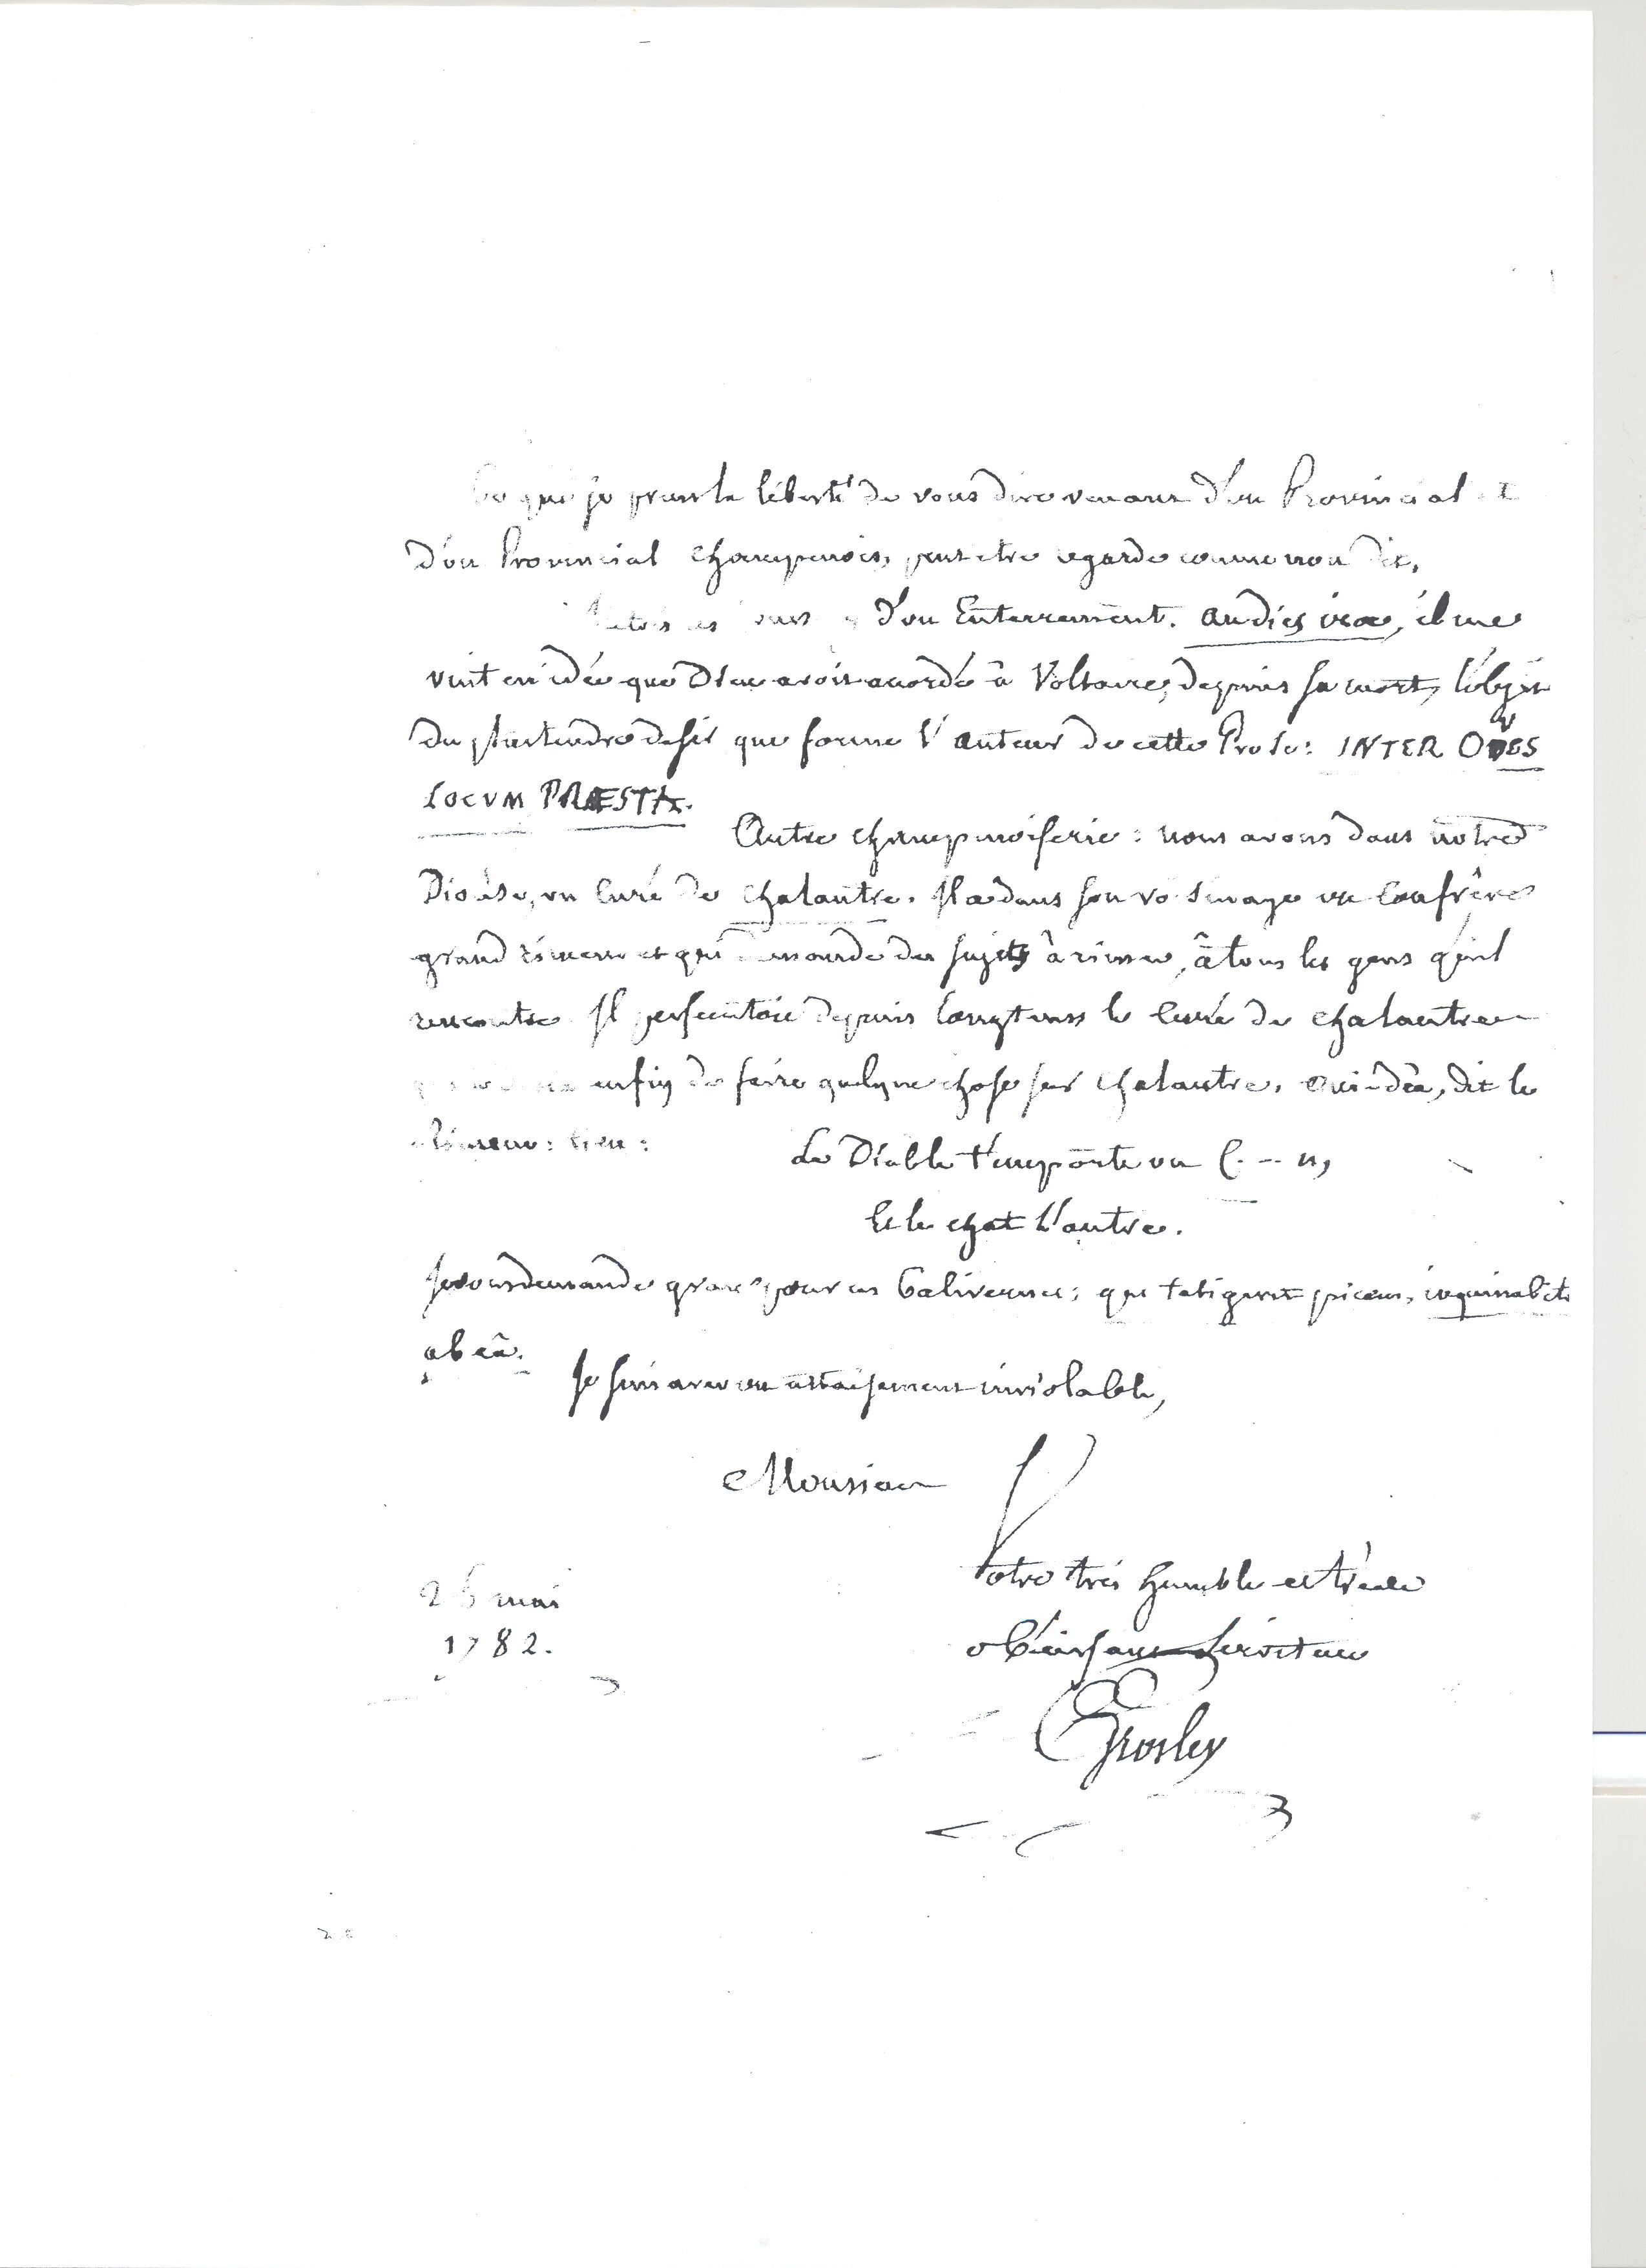 Ce que je prens la liberté de vous dire venant d'un Provincial et
d'un Provincial champenois, peut etre regardé comme non dit,
d'un Enterrement. au dies iræ, il me
vint en idée que Dieu avoit accordé à Voltaire, depuis sa mort, l'objet
du plus tendre desir que forme l'auteur de cette Prose: INTER OVES
LOCVM PRÆSTA.
Autre champenoiserie: nous avons dans notre
Diocèse, un Curé de Chalautre. Il a dans son voisinage un Confrère
grand rimeur et qui demande des sujets à rimer, à tous les gens qu'il
rencontre Il persecutoit depuis longtems le Curé de Chalautre
enfin de faire quelque chose sur Chalautre, oui-dà, dit le
Rimeur: tien:
Le Diable t'emporte un C--n,
Et le chat l'autre.
Je vous demande grace pour ces Balivernes: qui tetigerit picem, inquinabitur
ab eâ.
Je suis avec un attachement inviolable,
Monsieur
Votre très humble et très
obéissant serviteur
26 mai
1782.
Grosley